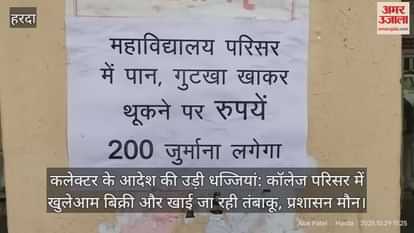 हरदा
अमर उजाला
amarujala.com
महाविद्यालय परिसर
में पान, गुटखा खाकर
थूकने पर रुपयें
200 जुर्माना लगेगा
कलेक्टर के आदेश की उड़ी धज्जियां: कॉलेज परिसर में
खुलेआम बिक्री और खाई जा रही तंबाकू, प्रशासन मौन।
Atul Patel Harda 2025.10.29 11:25